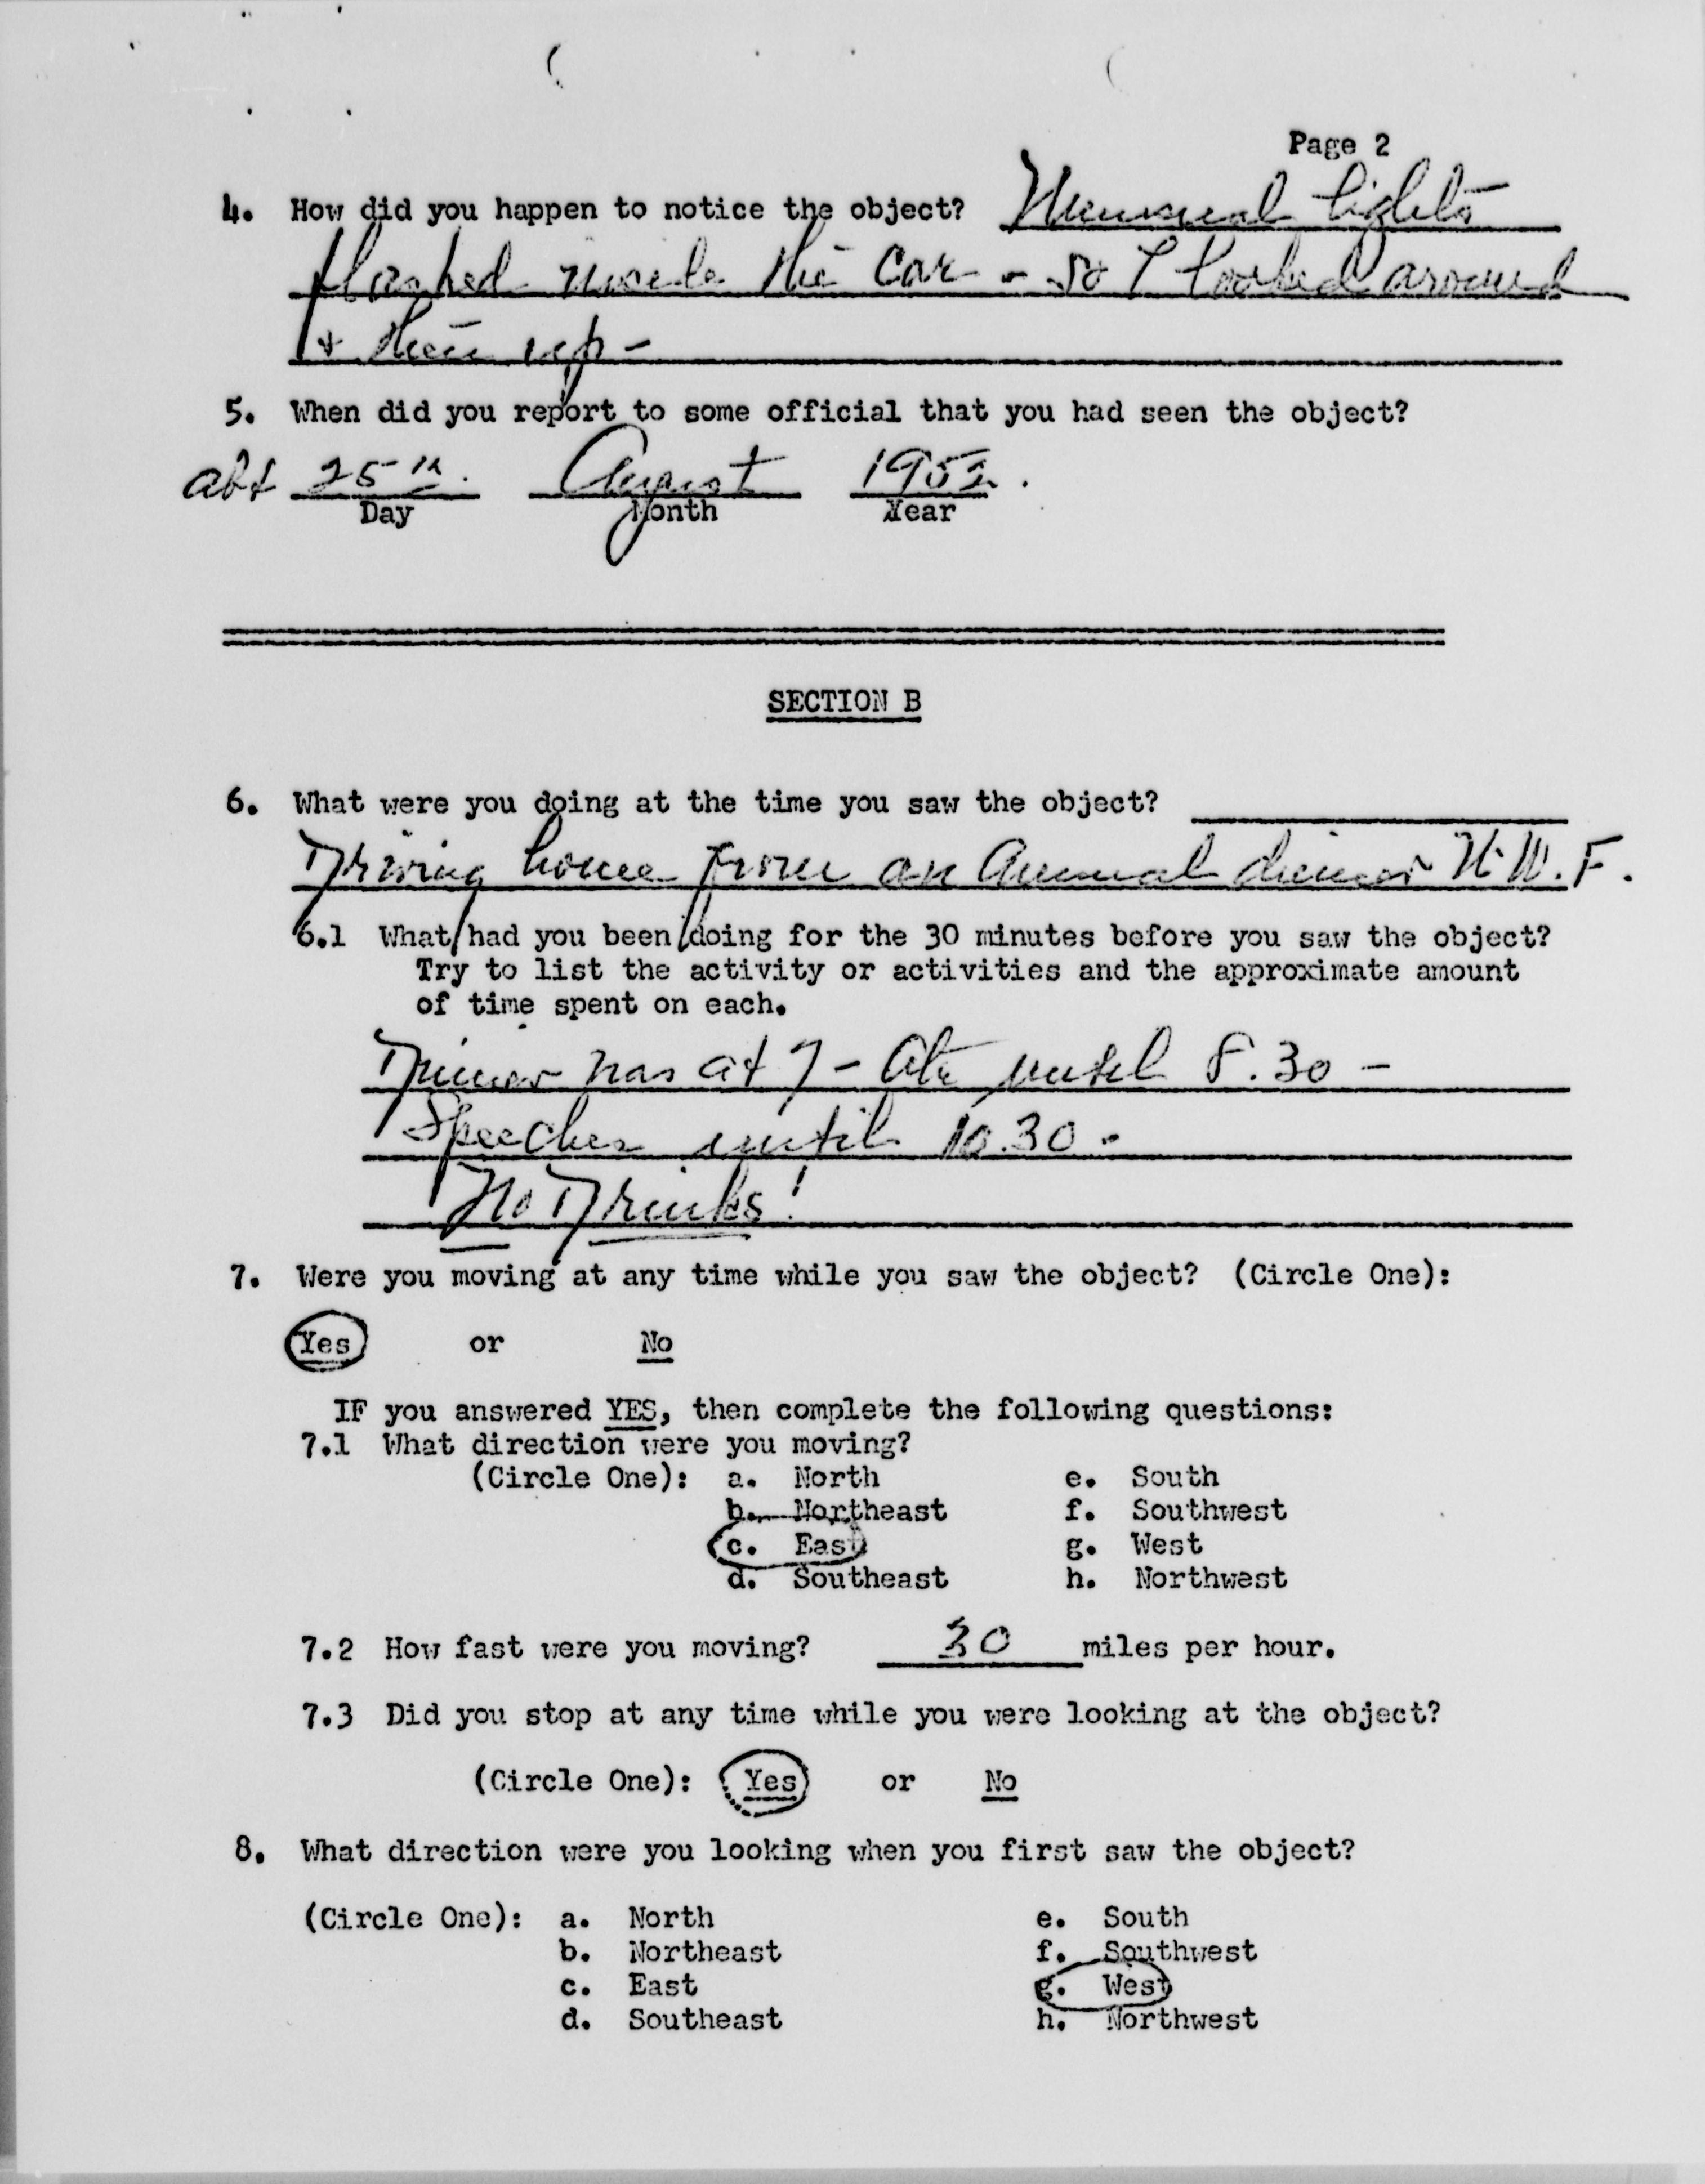 Page 2
4. How did you happen to notice the object? Unusual lights
flashed inside the car - so I looked around
+ then up -
5. When did you report to some official that you had seen the object?
abt 25th. August 1952.
Day Month Year
SECTION B
6. What were you doing at the time you saw the object?
Driving home from an Annual dinner W.F.
6.1 What had you been doing for the 30 minutes before you saw the object?
Try to list the activity or activities and the approximate amount
of time spent on each.
Dinner was at 7 - Ate until 8.30 -
Speeches until 10.30 -
No Drinks!
7. Were you moving at any time while you saw the object? (Circle One):
Yes or No
IF you answered YES, then complete the following questions:
7.1 What direction were you moving?
(Circle One): a. North e. South
b. Northeast f. Southwest
c. East g. West
d. Southeast h. Northwest
7.2 How fast were you moving? 30 miles per hour.
7.3 Did you stop at any time while you were looking at the object?
(Circle One): Yes or No
8. What direction were you looking when you first saw the object?
(Circle One): a. North e. South
b. Northeast f. Southwest
c. East g. West
d. Southeast h. Northwest